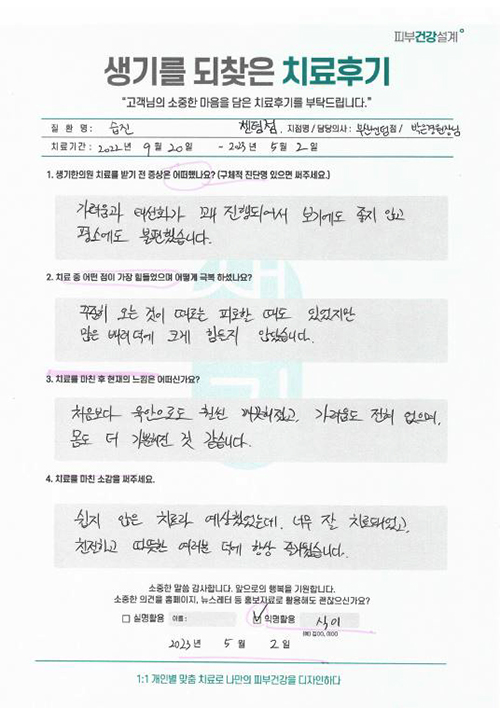 피부건강설계
생기를 되찾은 치료후기
"고객님의 소중한 마음을 담은 치료후기를 부탁드립니다."
질 환 명 : 습진 센텀점, 지점명 / 담당의사 : 부산센텀점 / 박은경원장님
치료기간 : 2022년 9월 20일 - 2023년 5월 2일
1. 생기한의원 치료를 받기 전 증상은 어떠했나요? (구체적 진단명 있으면 써주세요.)
가려움과 태선화가 꽤 진행되어서 보기에도 좋지 않고
평소에도 불편했습니다.
2. 치료 중 어떤 점이 가장 힘들었으며 어떻게 극복 하셨나요?
꾸준히 오는 것이 때로는 피로한 때도 있었지만
많은 배려 덕에 크게 힘든지 않았습니다.
3. 치료를 마친 후 현재의 느낌은 어떠신가요?
처음보다 육안으로도 훨씬 깨끗해졌고, 가려움도 전혀 없으며,
몸도 더 가뿐해진 것 같습니다.
4. 치료를 마친 소감을 써주세요.
쉽지 않은 치료라 예상했었는데, 너무 잘 치료돼었고,
친절하고 따뜻한 여러분 덕에 항상 즐거웠습니다.
소중한 말씀 감사합니다. 앞으로의 행복을 기원합니다.
소중한 의견을 홈페이지, 뉴스레터 등 홍보자료로 활용해도 괜찮으신가요?
실명활용 이름 : 익명활용 식이
예) 김00, 이00
2023년 5월 2일
1:1 개인별 맞춤 치료로 나만의 피부건강을 디자인하다